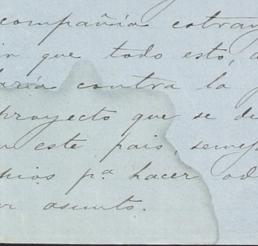 compañía extran
ir que todo esto, a
laría contra la
proyecto que se de
n este país, semej
dios pª hacer od
er asunto.